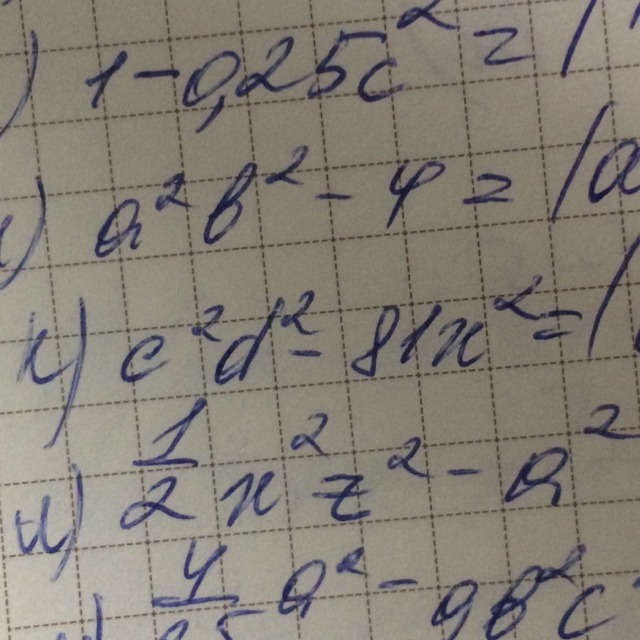 ) 1-0,25c² = (
) a²b² - 4 = (a
к) c²d² - 81x² = (
и) 1/2 x²z² - a²
4/25 a² - 9b²c